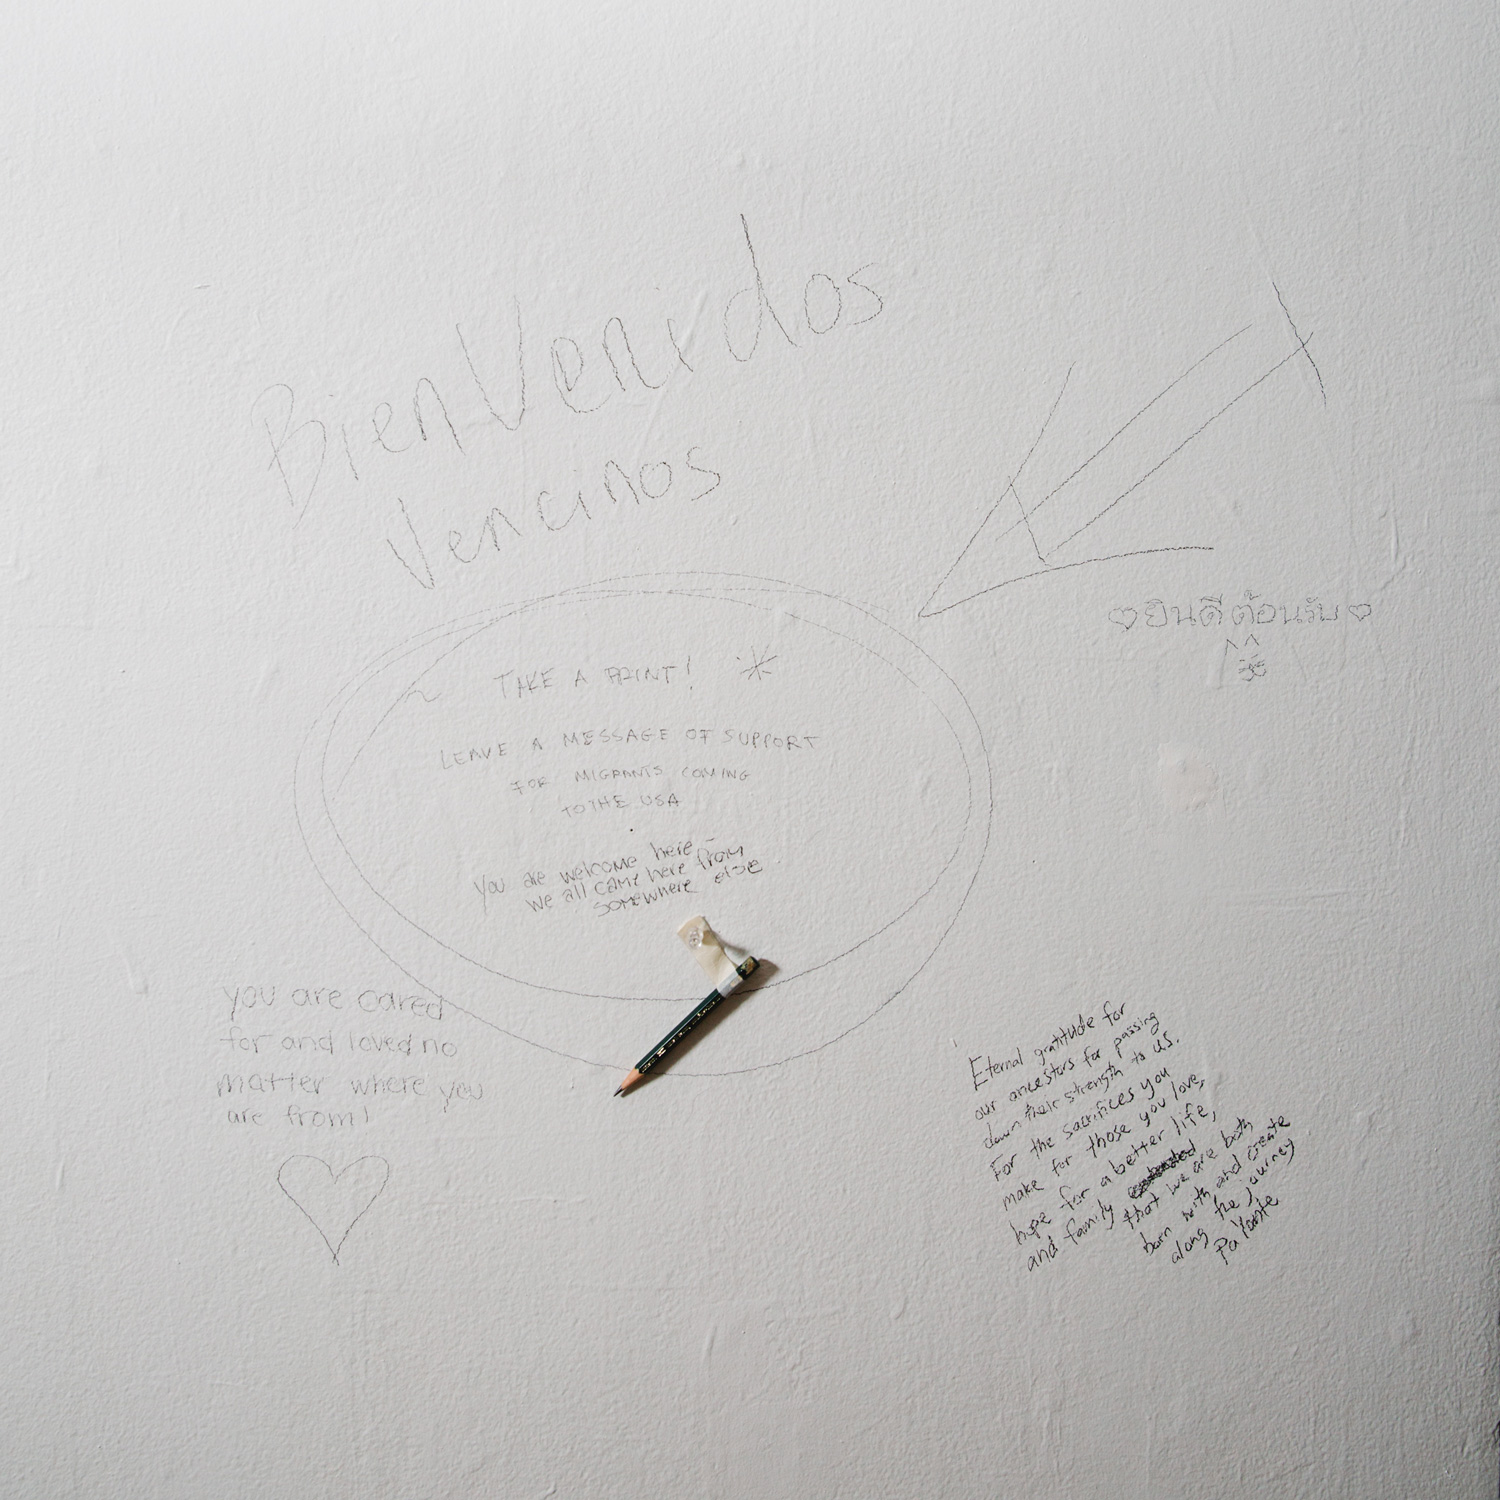 BienVenidos
Vencinos
TAKE A PRINT!
LEAVE A MESSAGE OF SUPPORT
FOR MIGRANTS COMING
TO THE USA
you are welcome here -
we all came here from
somewhere else
♡ยินดีต้อนรับ♡
you are cared
for and loved no
matter where you
are from!
Eternal gratitude for
our ancestors for passing
down their strength to us.
For the sacrifices you
make for those you love,
hope for a better life,
and family that we are both
born with and create
along the journey
Pa'lante